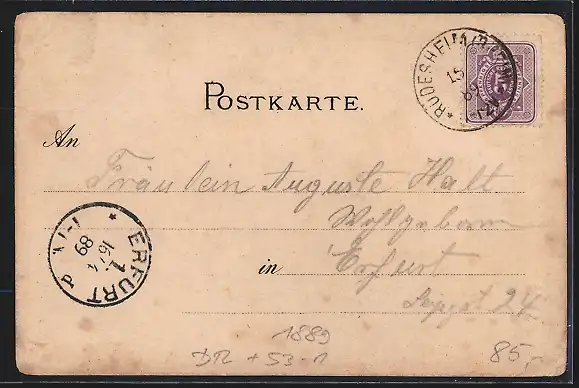 RÜDESHEIM
15
89
POSTKARTE.
An
Fräulein Auguste Halt
Wohlgeboren
in Erfurt
24
ERFURT
1.
16/4
89
1889
DR + 53-1
85,-